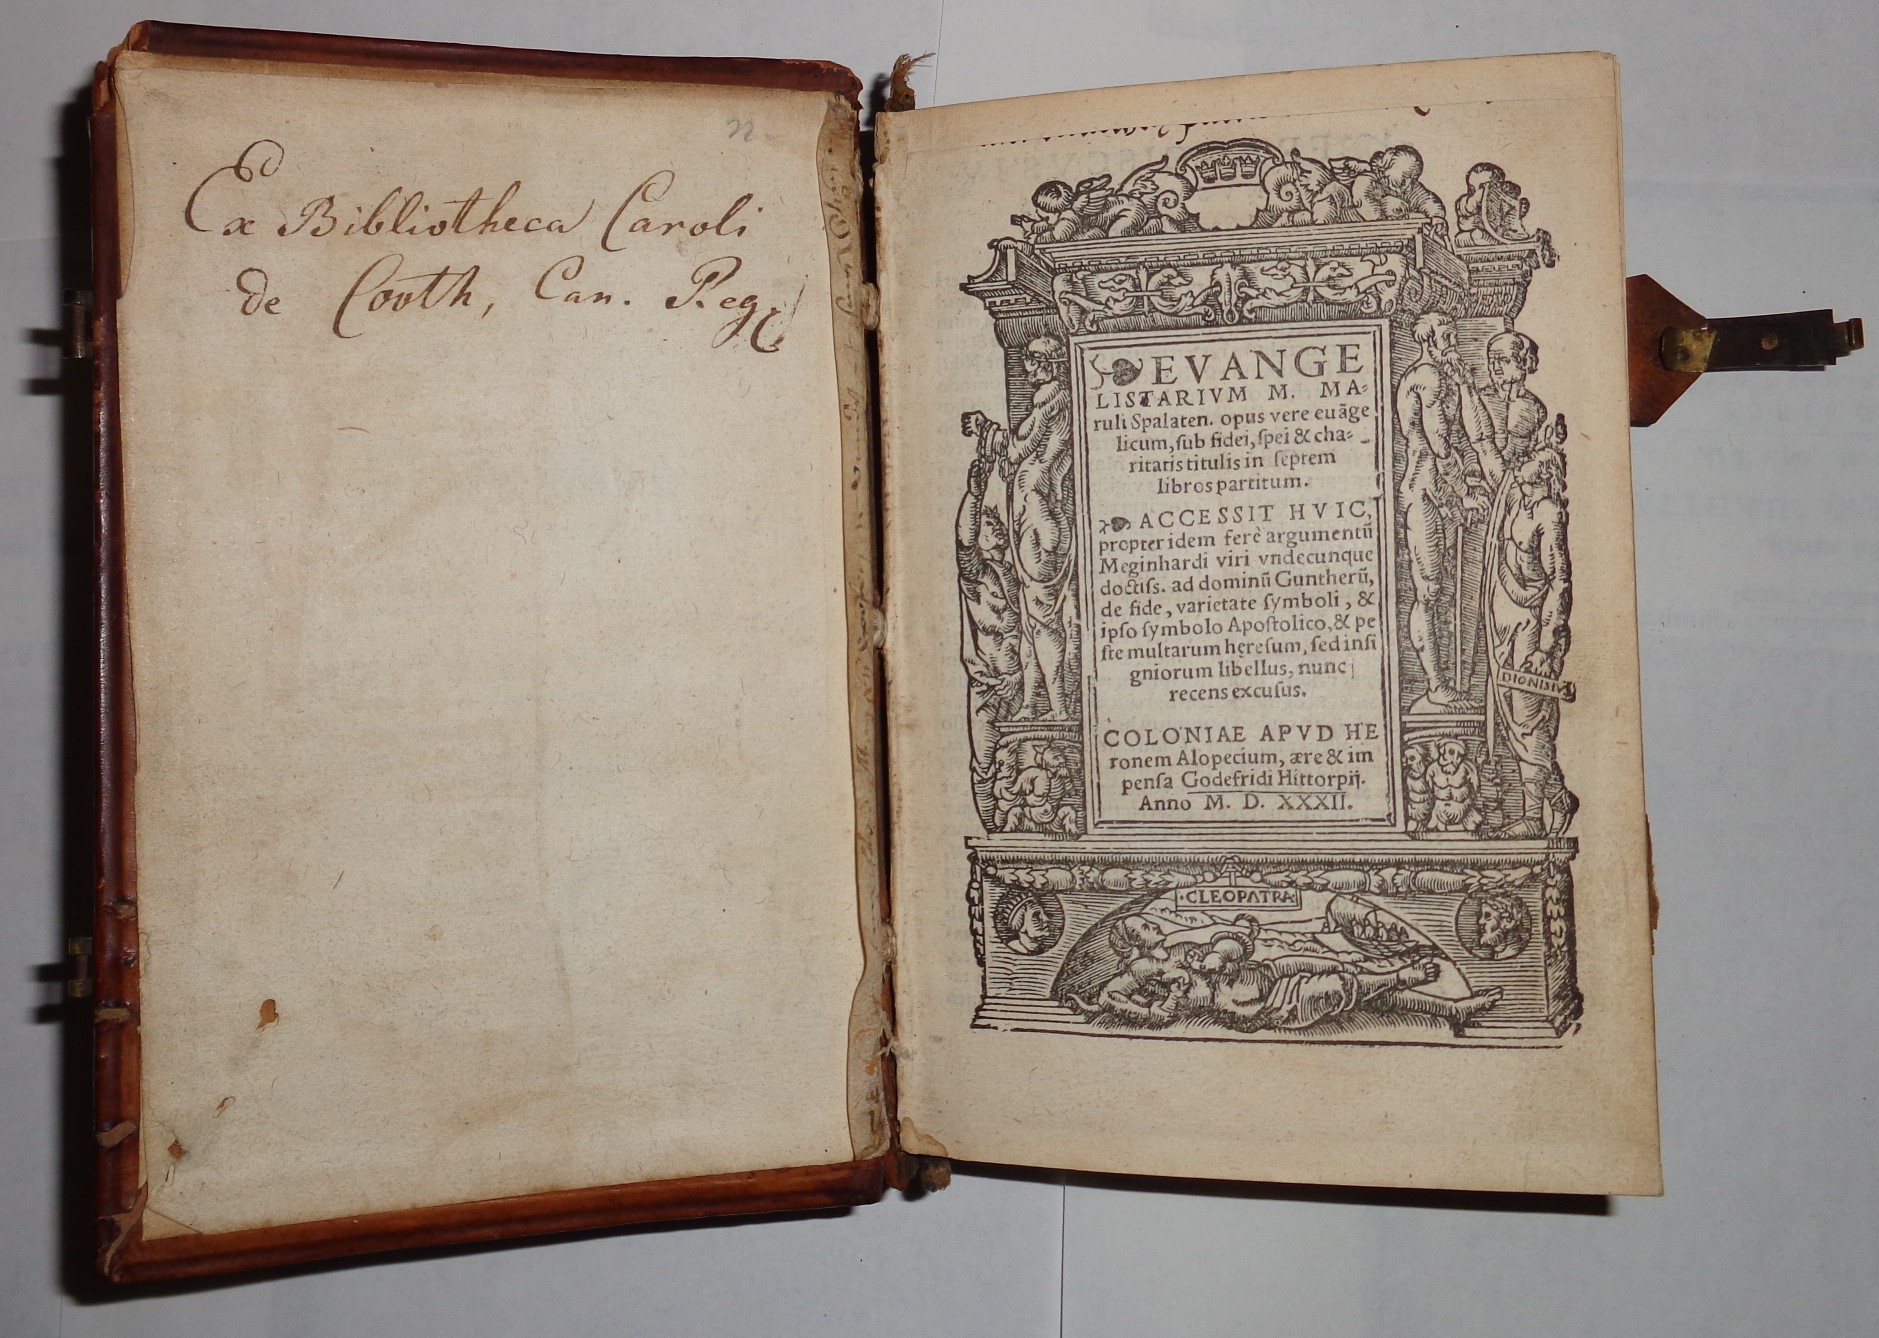 Ex Bibliotheca Caroli
de Cooth, Can. Reg.
EVANGE
LISTARIVM M. MA-
ruli Spalaten. opus vere euāge
licum, sub fidei, spei & cha-
ritatis titulis in septem
libros partitum.
ACCESSIT HVIC,
propter idem ferè argumentū
Meginhardi viri vndecunque
doctiss. ad dominū Guntherū,
de fide, varietate symboli, &
ipso symbolo Apostolico, & pe
ste multarum hęresum, sed insi
gniorum libellus, nunc
recens excusus.
COLONIAE APVD HE
ronem Alopecium, ære & im
pensa Godefridi Hittorpij.
Anno M. D. XXXII.
DIONISIVS
CLEOPATRA